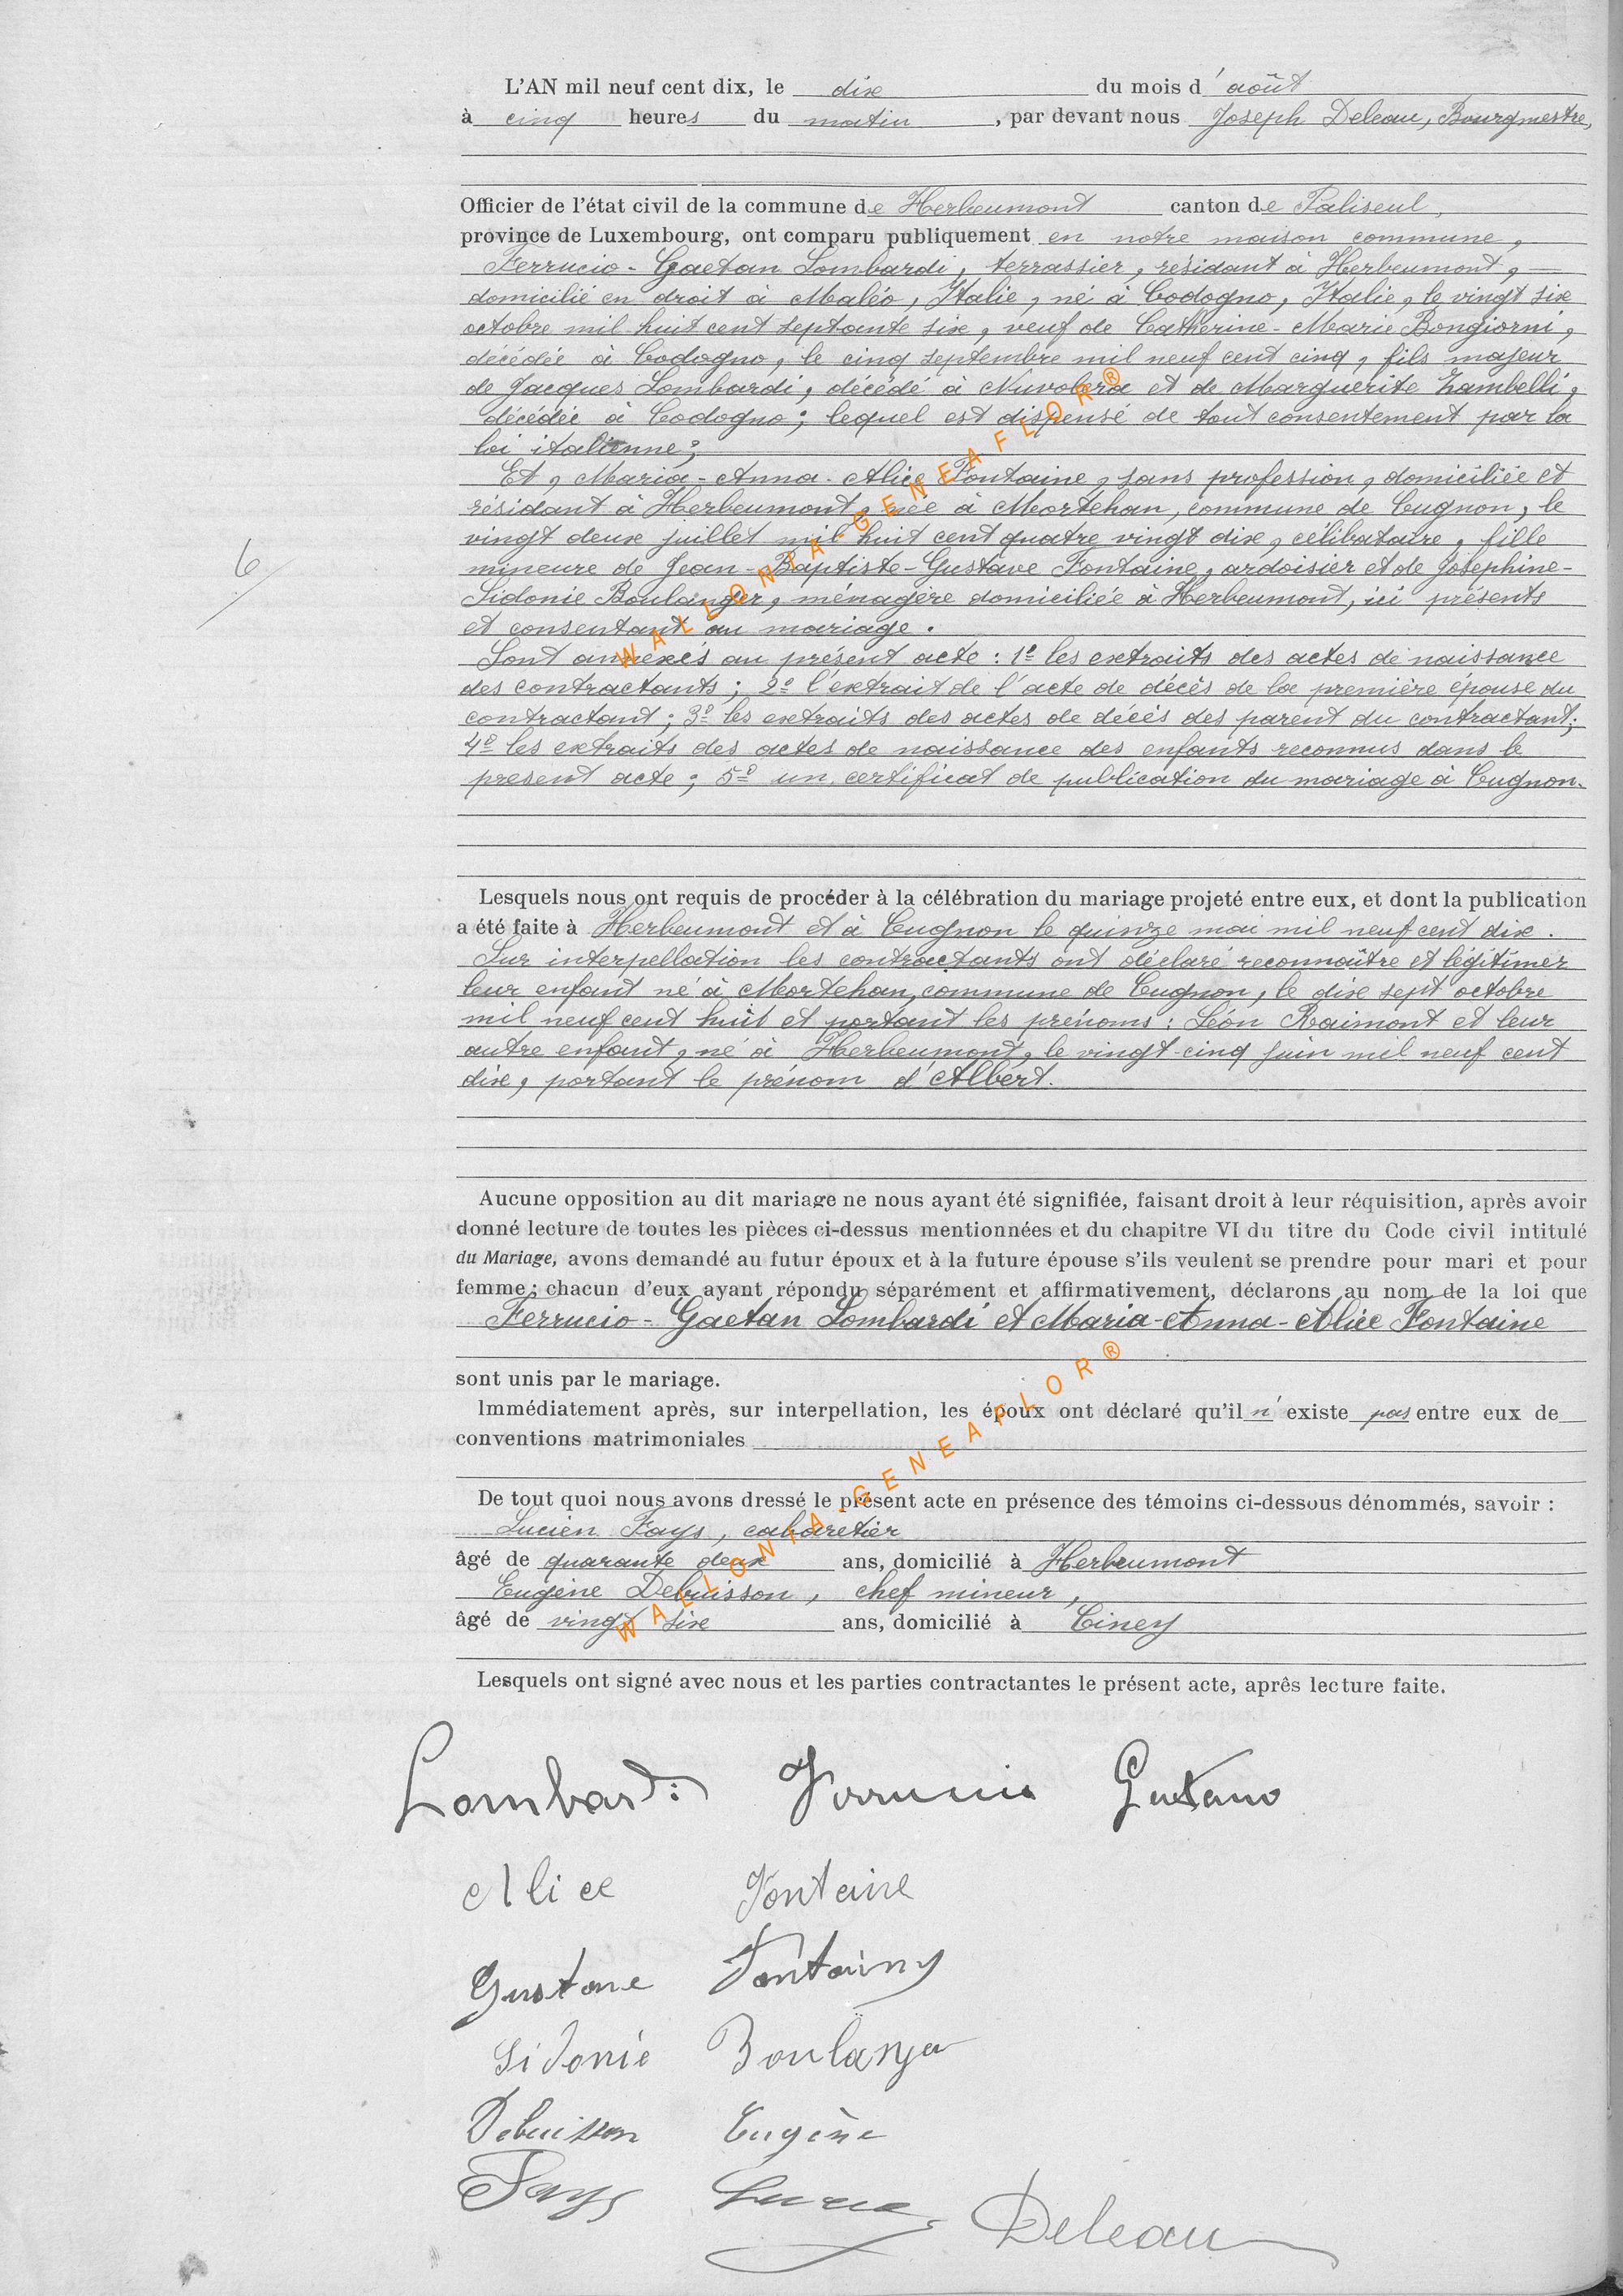 L'AN mil neuf cent dix, le dix du mois d'août
à cinq heures du matin, par devant nous Joseph Deleau, Bourgmestre,
Officier de l'état civil de la commune de Herbeumont canton de Paliseul,
province de Luxembourg, ont comparu publiquement en notre maison commune,
Ferrucio-Gaetan Lombardi, terrassier, résidant à Herbeumont, —
domicilié en droit à Maléo, Italie, né à Codogno, Italie, le vingt six
octobre mil huit cent septante six, veuf de Catherine-Marie Bongiorni,
décédée à Codogno, le cinq septembre mil neuf cent cinq, fils majeur
de Jacques Lombardi, décédé à Nuvolera et de Marguerite Zambelli,
décédée à Codogno; lequel est dispensé de tout consentement par la
loi italienne;
Et, Maria-Anna-Alice Fontaine, sans profession, domiciliée et
résidant à Herbeumont, née à Mortehan, commune de Cugnon, le
vingt deux juillet mil huit cent quatre vingt dix, célibataire, fille
mineure de Jean-Baptiste-Gustave Fontaine, ardoisier et de Joséphine-
Sidonie Boulanger, ménagère domiciliée à Herbeumont, ici présents
et consentant au mariage.
6
Sont annexés au présent acte: 1º les extraits des actes de naissance
des contractants; 2º l'extrait de l'acte de décès de la première épouse du
contractant; 3º les extraits des actes de décès des parent du contractant;
4º les extraits des actes de naissance des enfants reconnus dans le
présent acte; 5º un certificat de publication du mariage à Cugnon.
Lesquels nous ont requis de procéder à la célébration du mariage projeté entre eux, et dont la publication
a été faite à Herbeumont et à Cugnon le quinze mai mil neuf cent dix.
Sur interpellation les contractants ont déclaré reconnaître et légitimer
leur enfant né à Mortehan, commune de Cugnon, le dix sept octobre
mil neuf cent huit et portant les prénoms: Léon Raimont et leur
autre enfant, né à Herbeumont, le vingt-cinq juin mil neuf cent
dix, portant le prénom d'Albert.
Aucune opposition au dit mariage ne nous ayant été signifiée, faisant droit à leur réquisition, après avoir
donné lecture de toutes les pièces ci-dessus mentionnées et du chapitre VI du titre du Code civil intitulé
du Mariage, avons demandé au futur époux et à la future épouse s'ils veulent se prendre pour mari et pour
femme; chacun d'eux ayant répondu séparément et affirmativement, déclarons au nom de la loi que
Ferrucio-Gaetan Lombardi et Maria-Anna-Alice Fontaine
sont unis par le mariage.
Immédiatement après, sur interpellation, les époux ont déclaré qu'il n'existe pas entre eux de
conventions matrimoniales
De tout quoi nous avons dressé le présent acte en présence des témoins ci-dessous dénommés, savoir :
Lucien Fays, cabaretier
âgé de quarante deux ans, domicilié à Herbeumont
Eugène Debuisson, chef mineur,
âgé de vingt six ans, domicilié à Ciney
Lesquels ont signé avec nous et les parties contractantes le présent acte, après lecture faite.
Lombardi Ferrucio Gaetano
Alice Fontaine
Gustave Fontainy
Sidonie Boulanger
Debuisson Eugène
Fays Lucien
Deleau
WALLONIA-GENEAFLOR®
WALLONIA-GENEAFLOR®